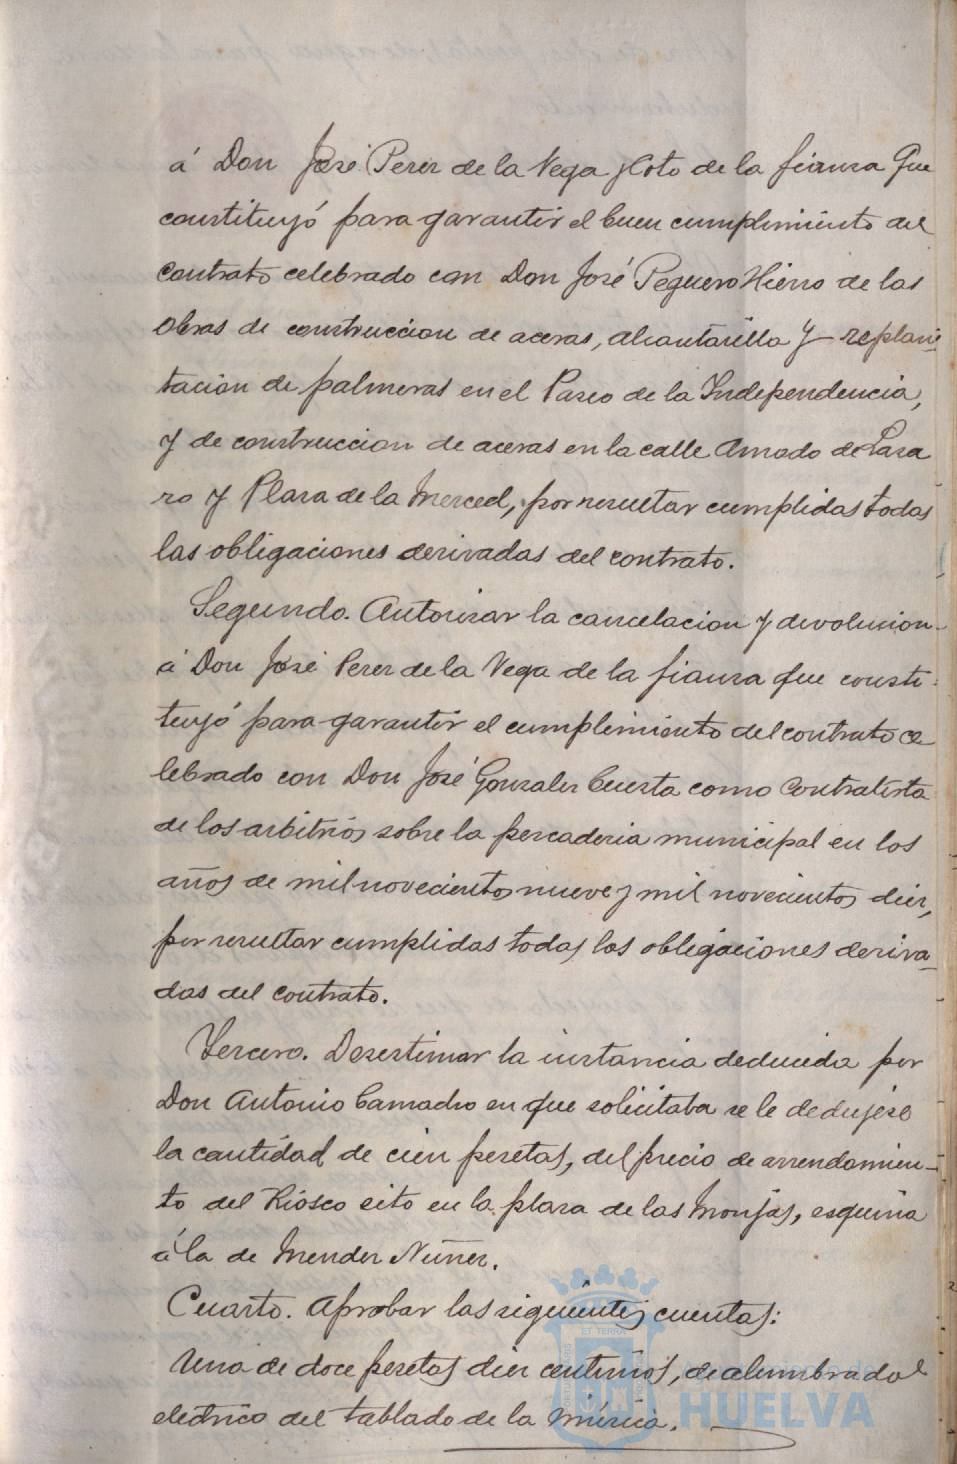 á Don José Perez de la Vega y Coto de la fianza que
constituyó para garantir el buen cumplimiento del
contrato celebrado con Don José Peguero Hierro de las
obras de construccion de aceras, alcantarilla y replan-
tacion de palmeras en el Paseo de la Independencia,
y de construccion de aceras en la calle Amado de Laza
ro y Plaza de la Merced, por resultar cumplidas todas
las obligaciones derivadas del contrato.
Segundo. Autorizar la cancelacion y devolucion
á Don José Perez de la Vega de la fianza que consti-
tuyó para garantir el cumplimiento del contrato ce
lebrado con Don José Gonzalez Cuesta como Contratista
de los arbitrios sobre la pescaderia municipal en los
años de mil novecientos nueve y mil novecientos diez,
por resultar cumplidas todas las obligaciones deriva-
das del contrato.
Tercero. Desestimar la instancia deducida por
Don Antonio Camacho en que solicitaba se le dedujese
la cantidad de cien pesetas, del precio de arrendamien-
to del Kiosco sito en la plaza de las Monjas, esquina
á la de Mendez Nuñez.
Cuarto. Aprobar las siguientes cuentas:
Una de doce pesetas diez centimos, de alumbrado
electrico del tablado de la música.
Ayuntamiento de
HUELVA